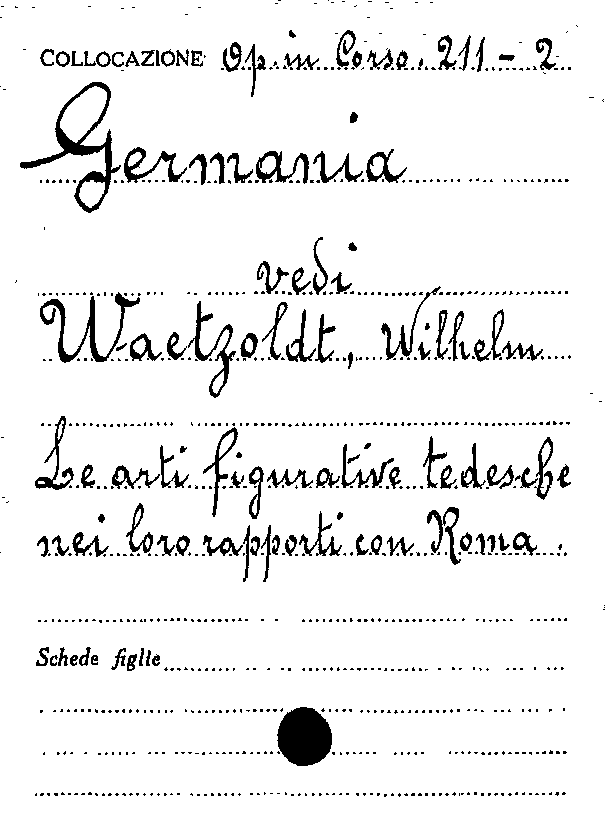 COLLOCAZIONE Op. in Corso. 211 - 2
Germania
vedi
Waetzoldt, Wilhelm
Le arti figurative tedesche
nei loro rapporti con Roma.
Schede figlie